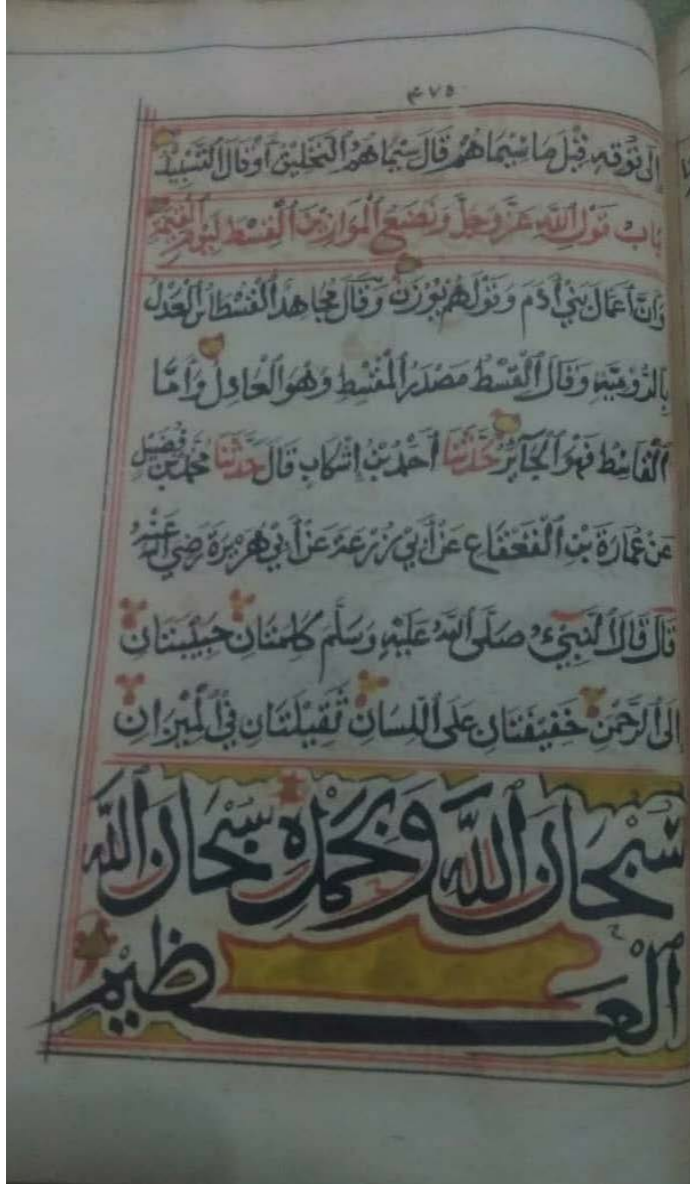 ٤٧٥
إلى فوقه قيل ما سيماهم قال سيماهم التحليق أو قال التسبيد
باب قول الله عز وجل ونضع الموازين القسط ليوم القيمة
وَأَنَّ أَعْمَالَ بَنِي آدَمَ وَقَوْلَهُمْ يُوزَنُ وَقَالَ مُجَاهِدٌ الْقِسْطَاسُ الْعَدْلُ
بِالرُّومِيَّةِ وَقَالَ الْقِسْطُ مَصْدَرُ الْمُقْسِطِ وَهُوَ الْعَادِلُ وَأَمَّا
الْقَاسِطُ فَهُوَ الْجَآئِرُ حَدَّثَنَا أَحْمَدُ بْنُ إِشْكَابَ قَالَ حَدَّثَنَا مُحَمَّدُ بْنُ فُضَيْلٍ
عَنْ عُمَارَةَ بْنِ الْقَعْقَاعِ عَنْ أَبِي زُرْعَةَ عَنْ أَبِي هُرَيْرَةَ رَضِيَ اللَّهُ عَنْهُ
قَالَ قَالَ النَّبِيُّ صَلَّى اللَّهُ عَلَيْهِ وَسَلَّمَ كَلِمَتَانِ حَبِيبَتَانِ
إِلَى الرَّحْمَنِ خَفِيفَتَانِ عَلَى اللِّسَانِ ثَقِيلَتَانِ فِي الْمِيزَانِ
سُبْحَانَ اللَّهِ وَبِحَمْدِهِ سُبْحَانَ اللَّهِ
الْعَظِيمِ